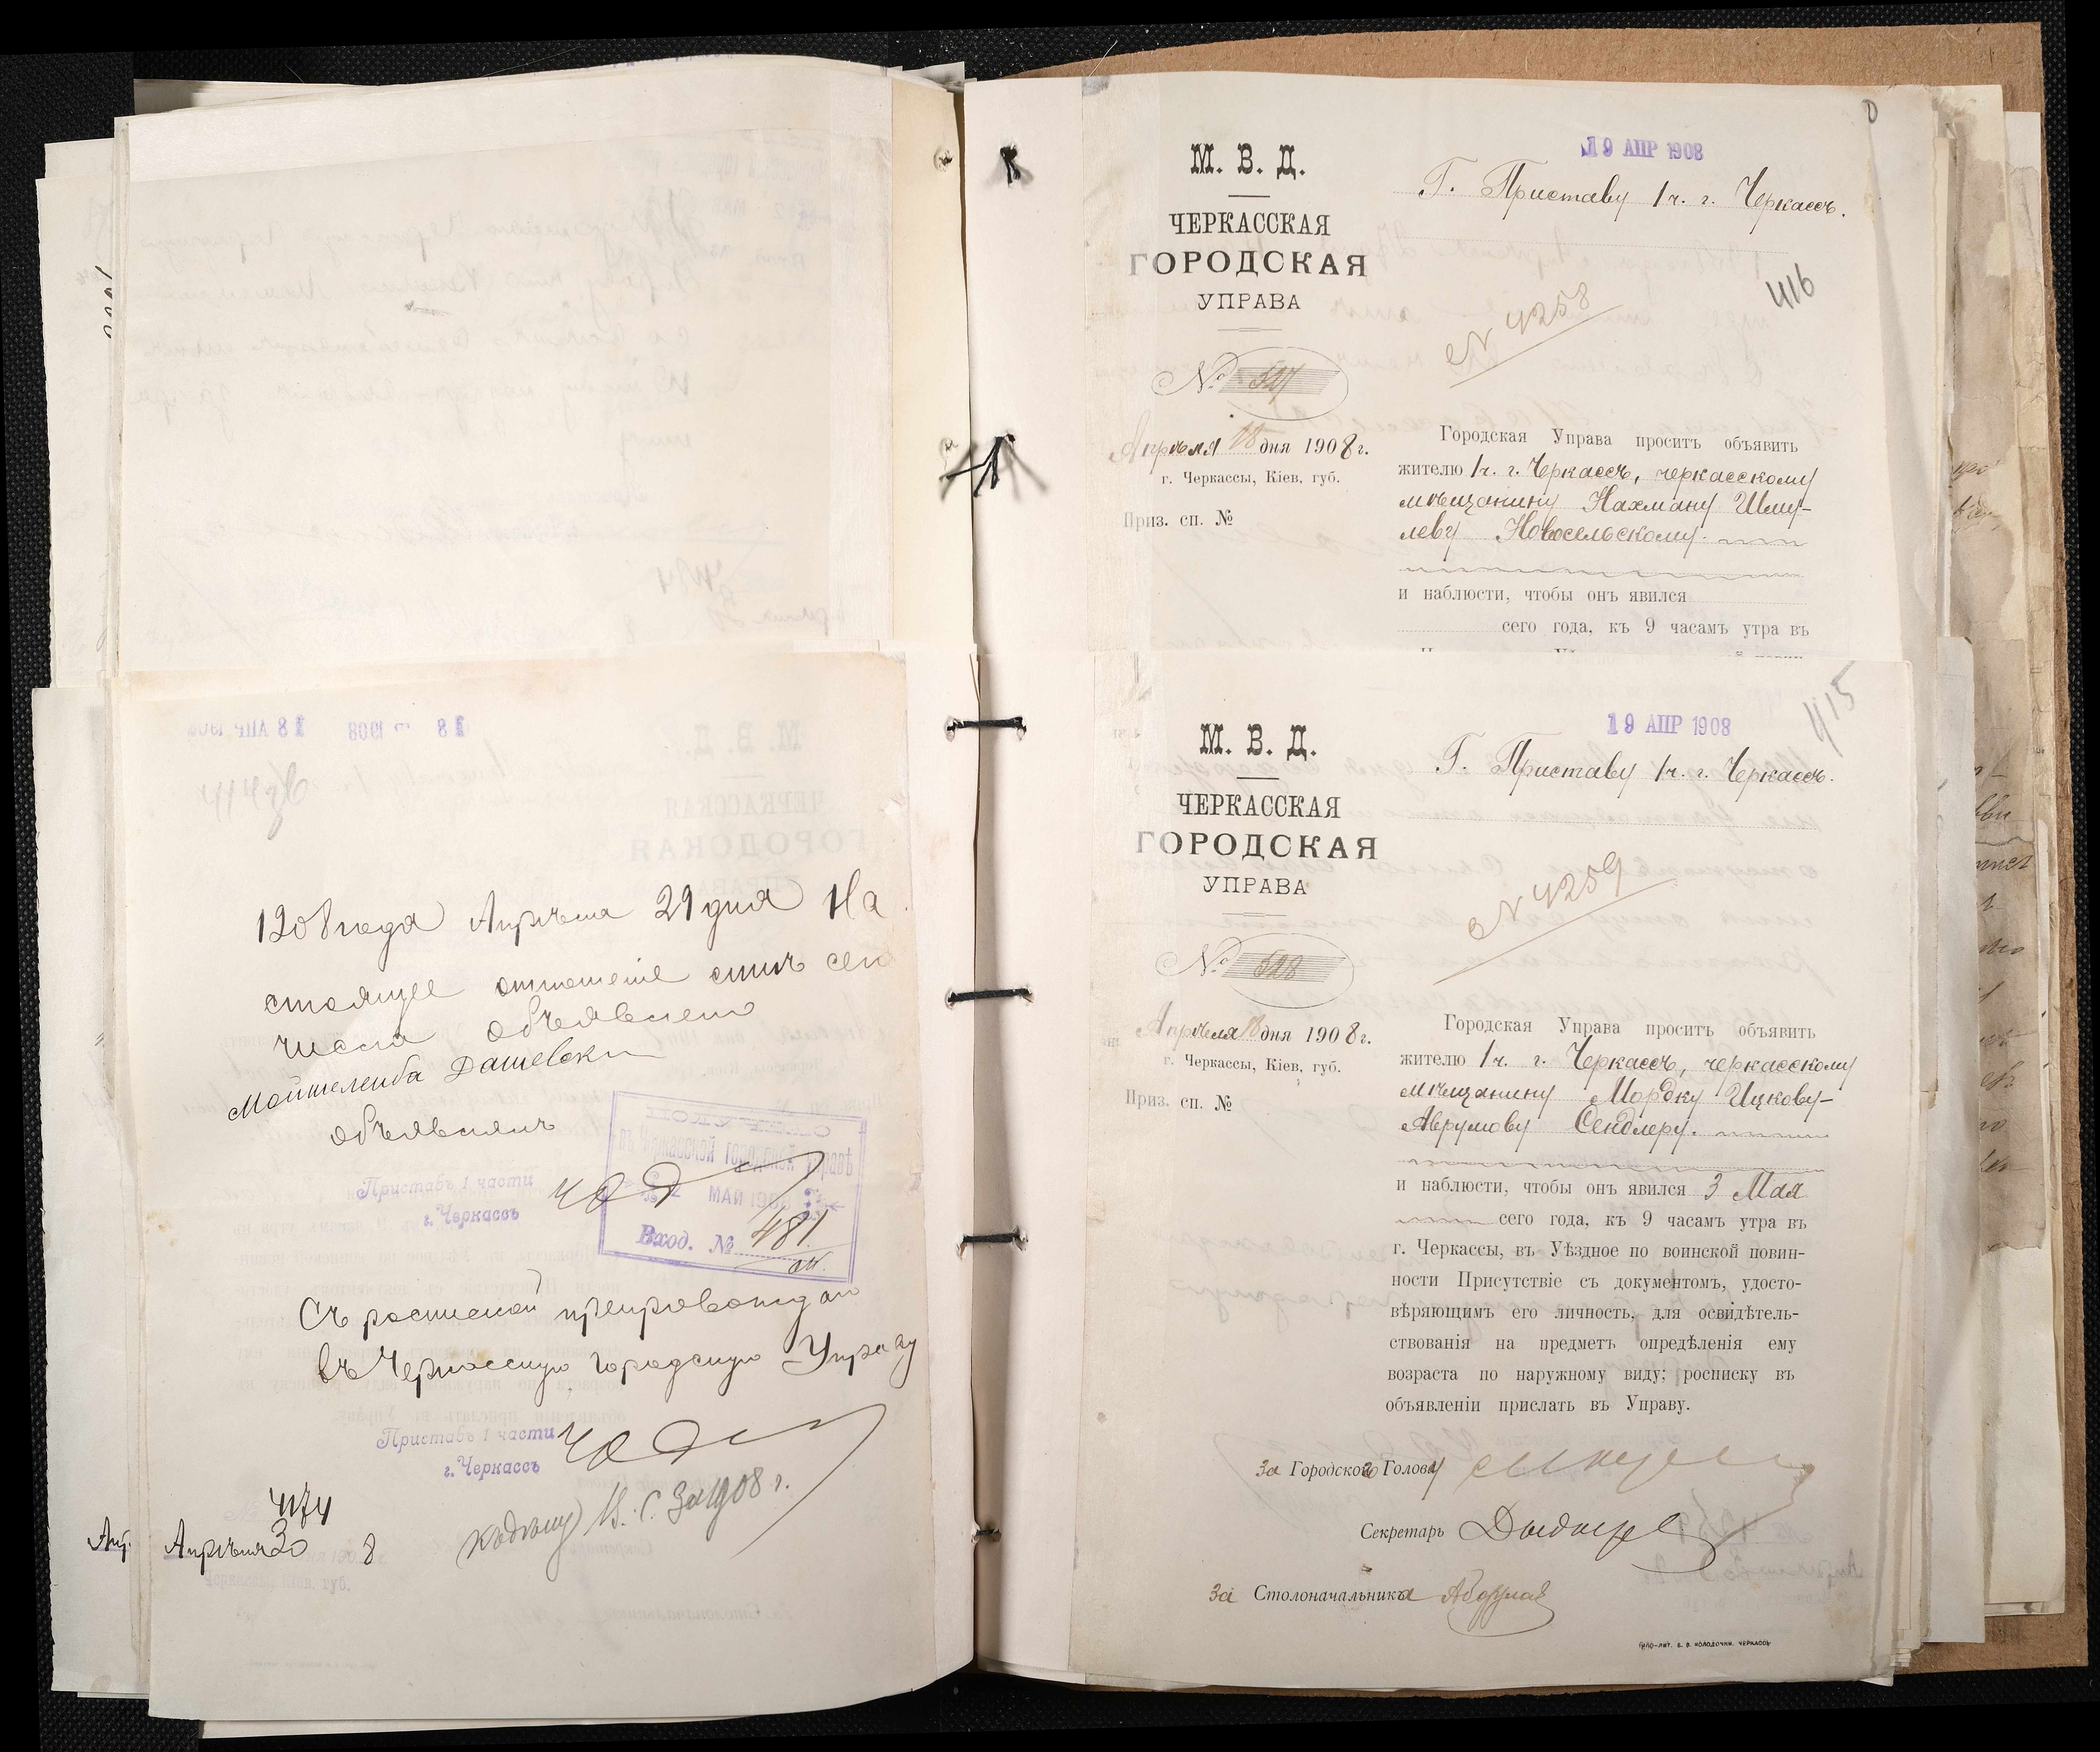 1908 года Апрѣля 29 дня На
стоящее отношеніе симъ сего
числа объявлено
Мойшелейба Дашевски
объявилъ
Приставъ 1 части
г. Черкассъ
въ Черкасской Городской Управѣ
МАЙ 1908
Вход. № 481
Съ роспиской препровождаю
въ Черкасскую Городскую Управу
Приставъ 1 части
г. Черкассъ
4174
Апрѣля 30 8
1908 г.
19 АПР 1908
М. В. Д.
ЧЕРКАССКАЯ
ГОРОДСКАЯ
УПРАВА
Г. Приставу 1 ч. г. Черкассъ.
416
№ 4258
№ 527
Апрѣля 18 дня 1908 г.
г. Черкассы, Кіев. губ.
Приз. сп. №
Городская Управа проситъ объявить
жителю 1 ч. г. Черкассъ, черкасскому
мѣщанину Нахману Шму-
леву Новосельскому.
и наблюсти, чтобы онъ явился
сего года, къ 9 часамъ утра въ
415
19 АПР 1908
М. В. Д.
ЧЕРКАССКАЯ
ГОРОДСКАЯ
УПРАВА
Г. Приставу 1 ч. г. Черкассъ.
№ 4259
№ 528
Апрѣля 18 дня 1908 г.
г. Черкассы, Кіев. губ.
Приз. сп. №
Городская Управа проситъ объявить
жителю 1 ч. г. Черкассъ, черкасскому
мѣщанину Мордку Ицкову-
Аврумову Сендлеру.
и наблюсти, чтобы онъ явился 3 Мая
сего года, къ 9 часамъ утра въ
г. Черкассы, въ Уѣздное по воинской повин-
ности Присутствіе съ документомъ, удосто-
вѣряющимъ его личность, для освидѣтель-
ствованія на предметъ опредѣленія ему
возраста по наружному виду; росписку въ
объявленіи прислать въ Управу.
За Городского Голову
Секретарь
За Столоначальника